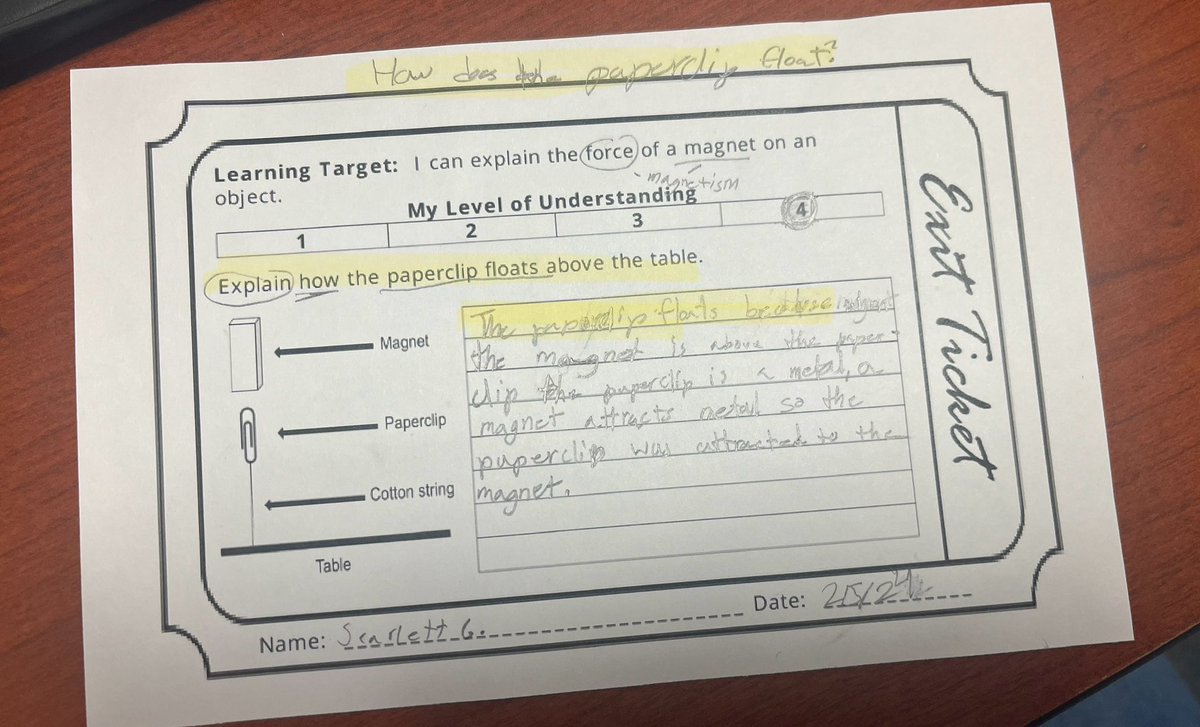 How does the paperclip float?
Learning Target: I can explain the force of a magnet on an
object.
magnetism
My Level of Understanding
1 2 3 4
Explain how the paperclip floats above the table.
Magnet
Paperclip
Cotton string
Table
The paperclip floats because
the magnet is above the paper-
clip the paperclip is a metal, a
magnet attracts metal so the
paperclip was attracted to the
magnet.
Exit Ticket
Name: Scarlett G.
Date: 2/5/24